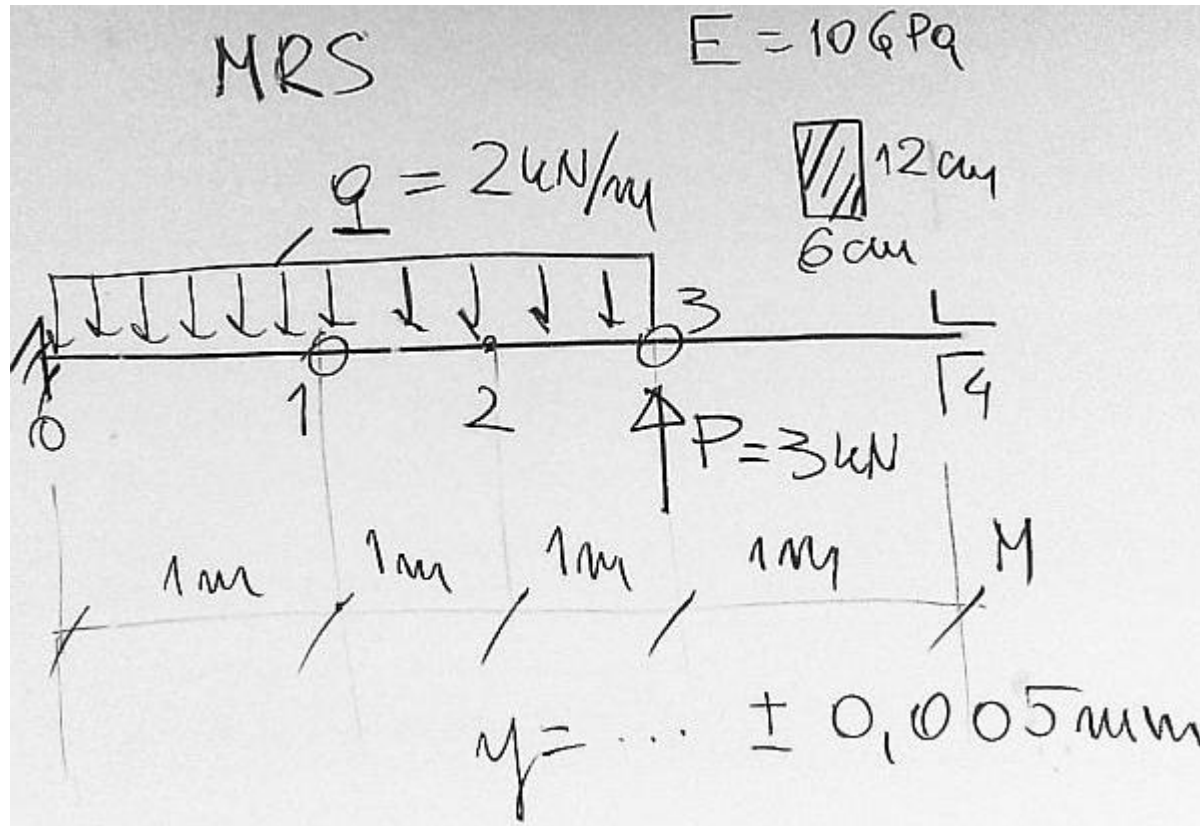 MRS
E = 10GPa
q = 2kN/m
12cm
6cm
0
1
2
3
4
P=3kN
1m
1m
1m
1m
M
y= .... ± 0,005mm